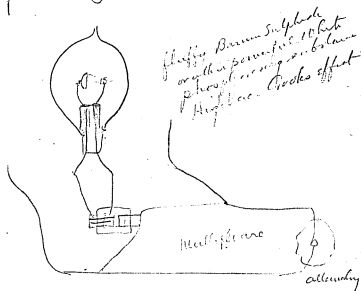 fluffy Barium Sulphide
or other powerful
phosphorescing substance
High vac Crooks effect
Multiple arc
alternating